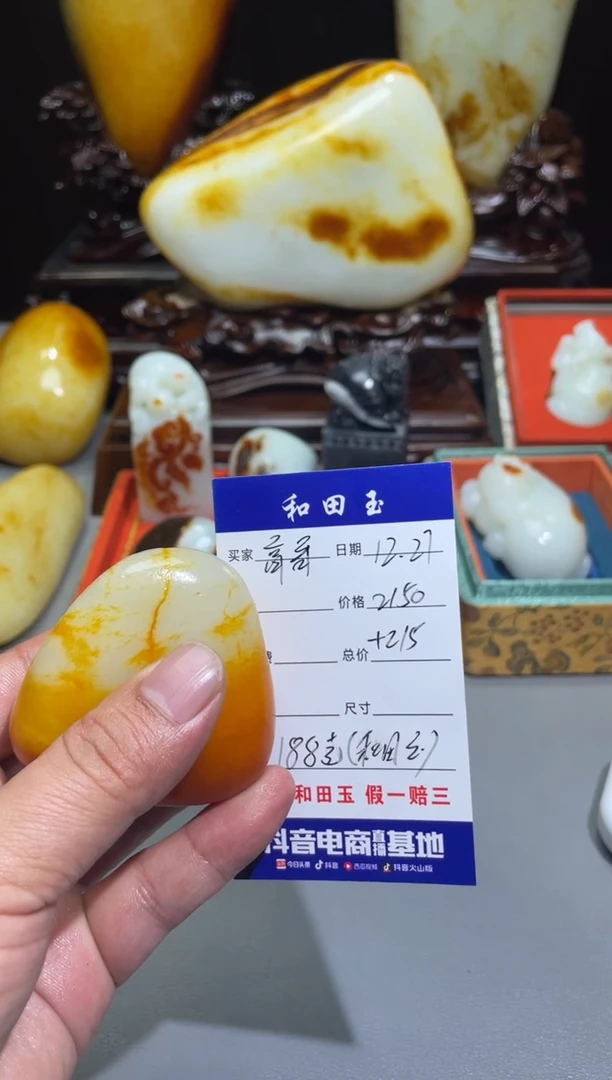 和田玉
买家 日期 12.27
价格 2150
+215
总价
尺寸
188克(和田玉)
和田玉 假一赔三
抖音电商直播基地
今日头条 抖音 西瓜视频 抖音火山版